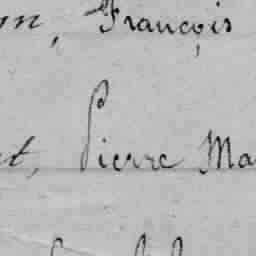 m, François
et, Pierre Ma